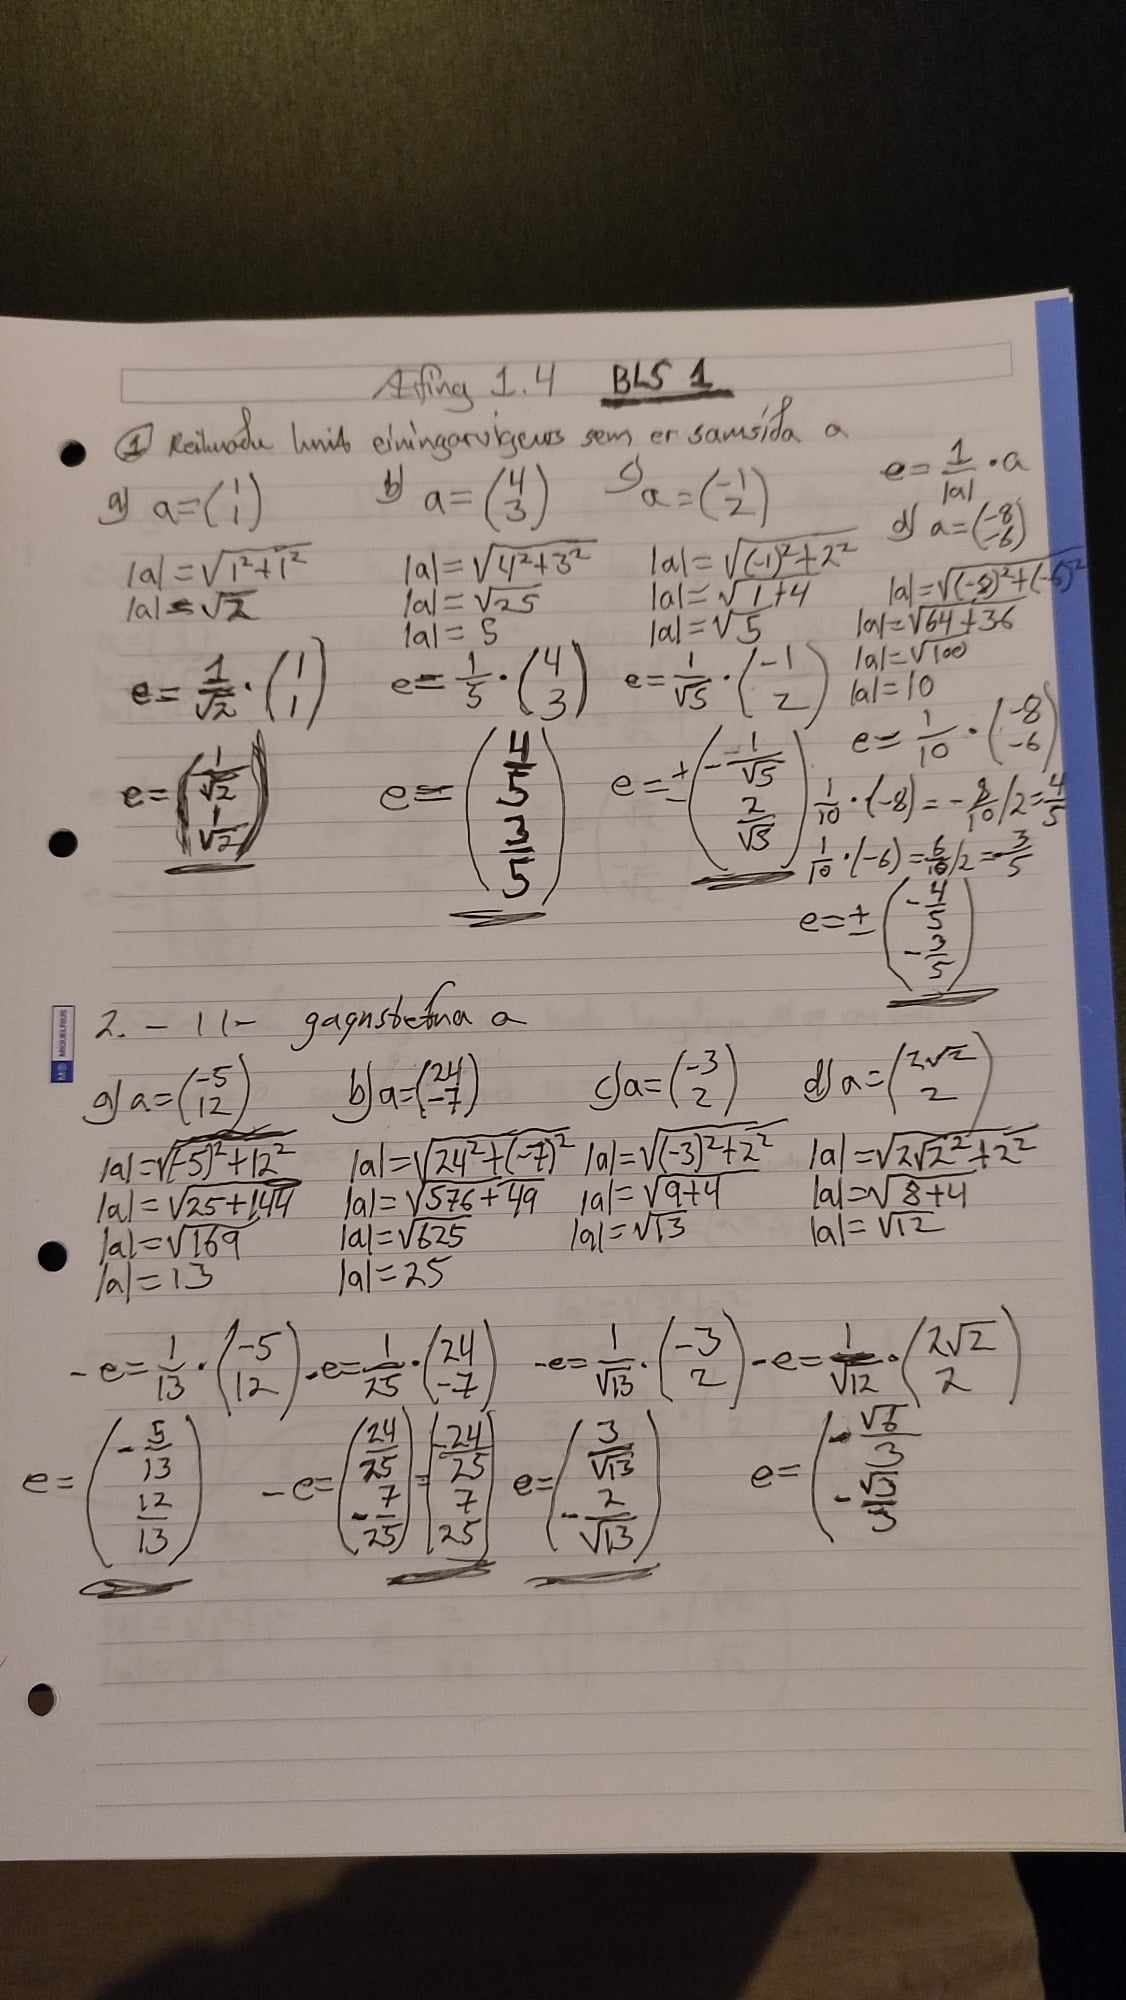 Æfing 1.4 BLS 1
① Reiknaðu hnit einingarvigurs sem er samsíða a
e = 1/|a| · a
a) a = (1 1)
|a| = √(1²+1²)
|a| = √2
e = 1/√2 · (1 1)
e = (1/√2 1/√2)
b) a = (4 3)
|a| = √(4²+3²)
|a| = √25
|a| = 5
e = 1/5 · (4 3)
e = (4/5 3/5)
c) a = (-1 2)
|a| = √((-1)²+2²)
|a| = √(1+4)
|a| = √5
e = 1/√5 · (-1 2)
e = ± (-1/√5 2/√3)
d) a = (-8 -6)
|a| = √((-8)²+(-6)²
|a| = √(64+36)
|a| = √100
|a| = 10
e = 1/10 · (-8 -6)
1/10 · (-8) = -8/10 /2 = 4/5
1/10 · (-6) = 6/10 /2 = -3/5
e = ± (-4/5 -3/5)
2. -11- gagnstefna a
a) a = (-5 12)
|a| = √((-5)²+12²)
|a| = √(25+144)
|a| = √169
|a| = 13
-e = 1/13 · (-5 12)
e = (-5/13 12/13)
b) a = (24 -7)
|a| = √(24²+(-7)²)
|a| = √(576+49)
|a| = √625
|a| = 25
-e = 1/25 · (24 -7)
-e = (24/25 -7/25) = (-24/25 7/25)
c) a = (-3 2)
|a| = √((-3)²+2²)
|a| = √(9+4)
|a| = √13
-e = 1/√13 · (-3 2)
e = (3/√13 -2/√13)
d) a = (2√2 2)
|a| = √(2√2²+2²)
|a| = √(8+4)
|a| = √12
-e = 1/√12 · (2√2 2)
e = (-√6/3 -√3/3
MIQUELRIUS